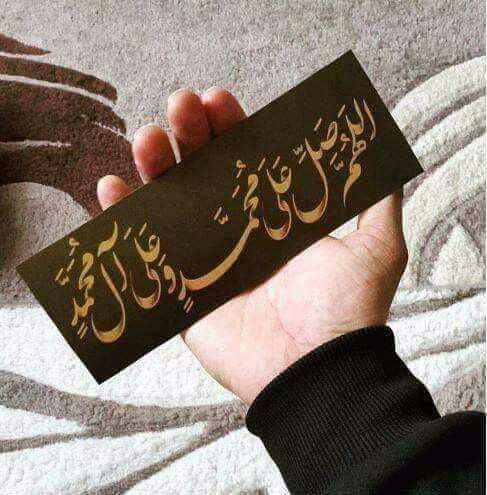 اللَّهُمَّ صَلِّ عَلَى مُحَمَّدٍ وَعَلَى آلِ مُحَمَّدٍ